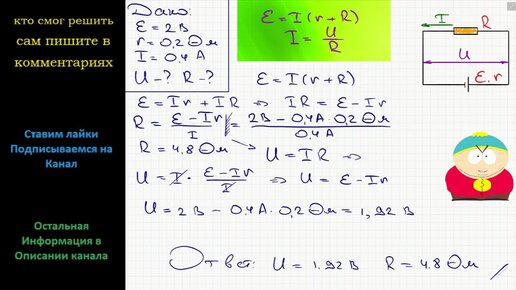 кто смог решить
сам пишите в
комментариях
Ставим лайки
Подписываемся на
Канал
Остальная
Информация в
Описании канала
Дано:
Ɛ = 2 В
r = 0,2 Ом
I = 0,4 А
U - ? R - ?
Ɛ = I (r + R)
I = U/R
I
R
U
Ɛ, r
Ɛ = I (r + R)
Ɛ = I r + I R ⇒ I R = Ɛ - I r
R = (Ɛ - I r)/I = (2 В - 0,4 А · 0,2 Ом)/0,4 А
R = 4.8 Ом U = I R ⇒
U = I · (Ɛ - I r)/I ⇒ U = Ɛ - I r
U = 2 В - 0.4 А · 0,2 Ом = 1,92 В
Ответ: U = 1.92 В R = 4.8 Ом